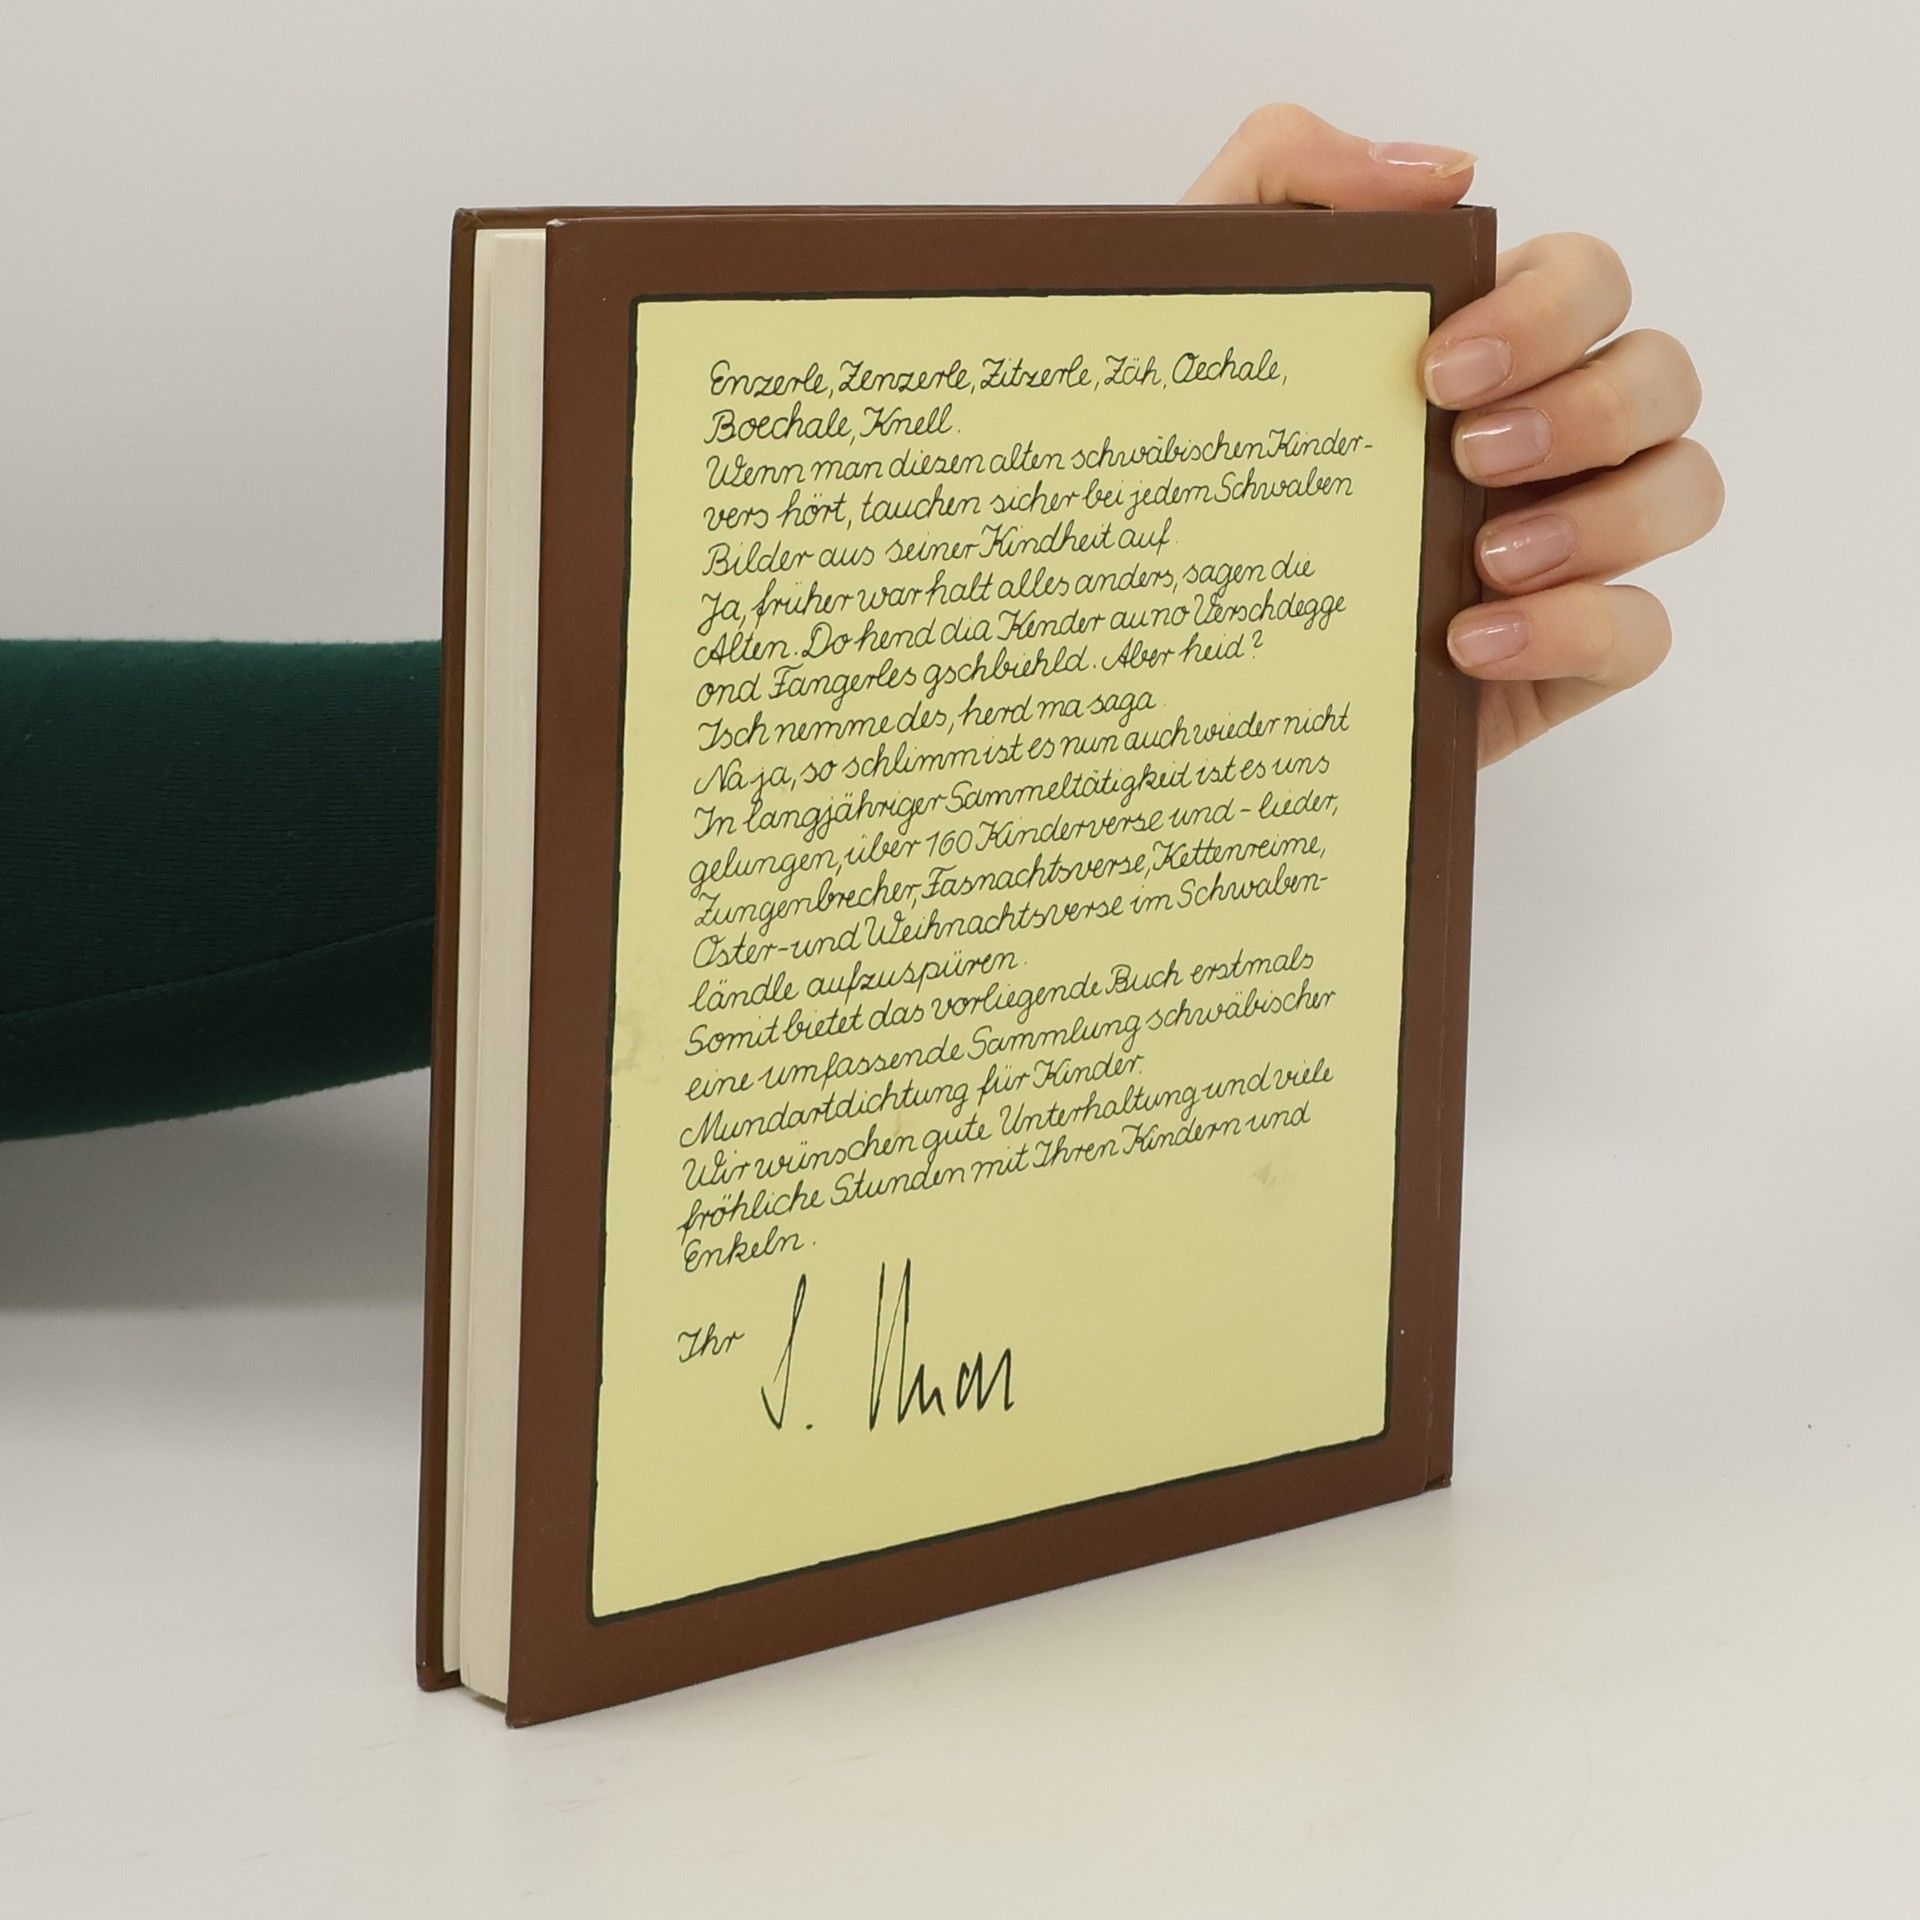 Enzerle, Zenzerle, Zitzerle, Zäh, Oechale,
Boechale, Knell.
Wenn man diesen alten schwäbischen Kinder-
vers hört, tauchen sicher bei jedem Schwaben
Bilder aus seiner Kindheit auf.
Ja, früher war halt alles anders, sagen die
Alten. Do hend dia Kender au no Verschdegge
ond Fangerles gschbiehld. Aber heid?
Isch nemme des, herd ma saga.
Na ja, so schlimm ist es nun auch wieder nicht
In langjähriger Sammeltätigkeit ist es uns
gelungen, über 160 Kinderverse und -lieder,
Zungenbrecher, Fasnachtsverse, Kettenreime,
Oster- und Weihnachtsverse im Schwaben-
ländle aufzuspüren.
Somit bietet das vorliegende Buch erstmals
eine umfassende Sammlung schwäbischer
Mundartdichtung für Kinder.
Wir wünschen gute Unterhaltung und viele
fröhliche Stunden mit Ihren Kindern und
Enkeln.
Ihr S.